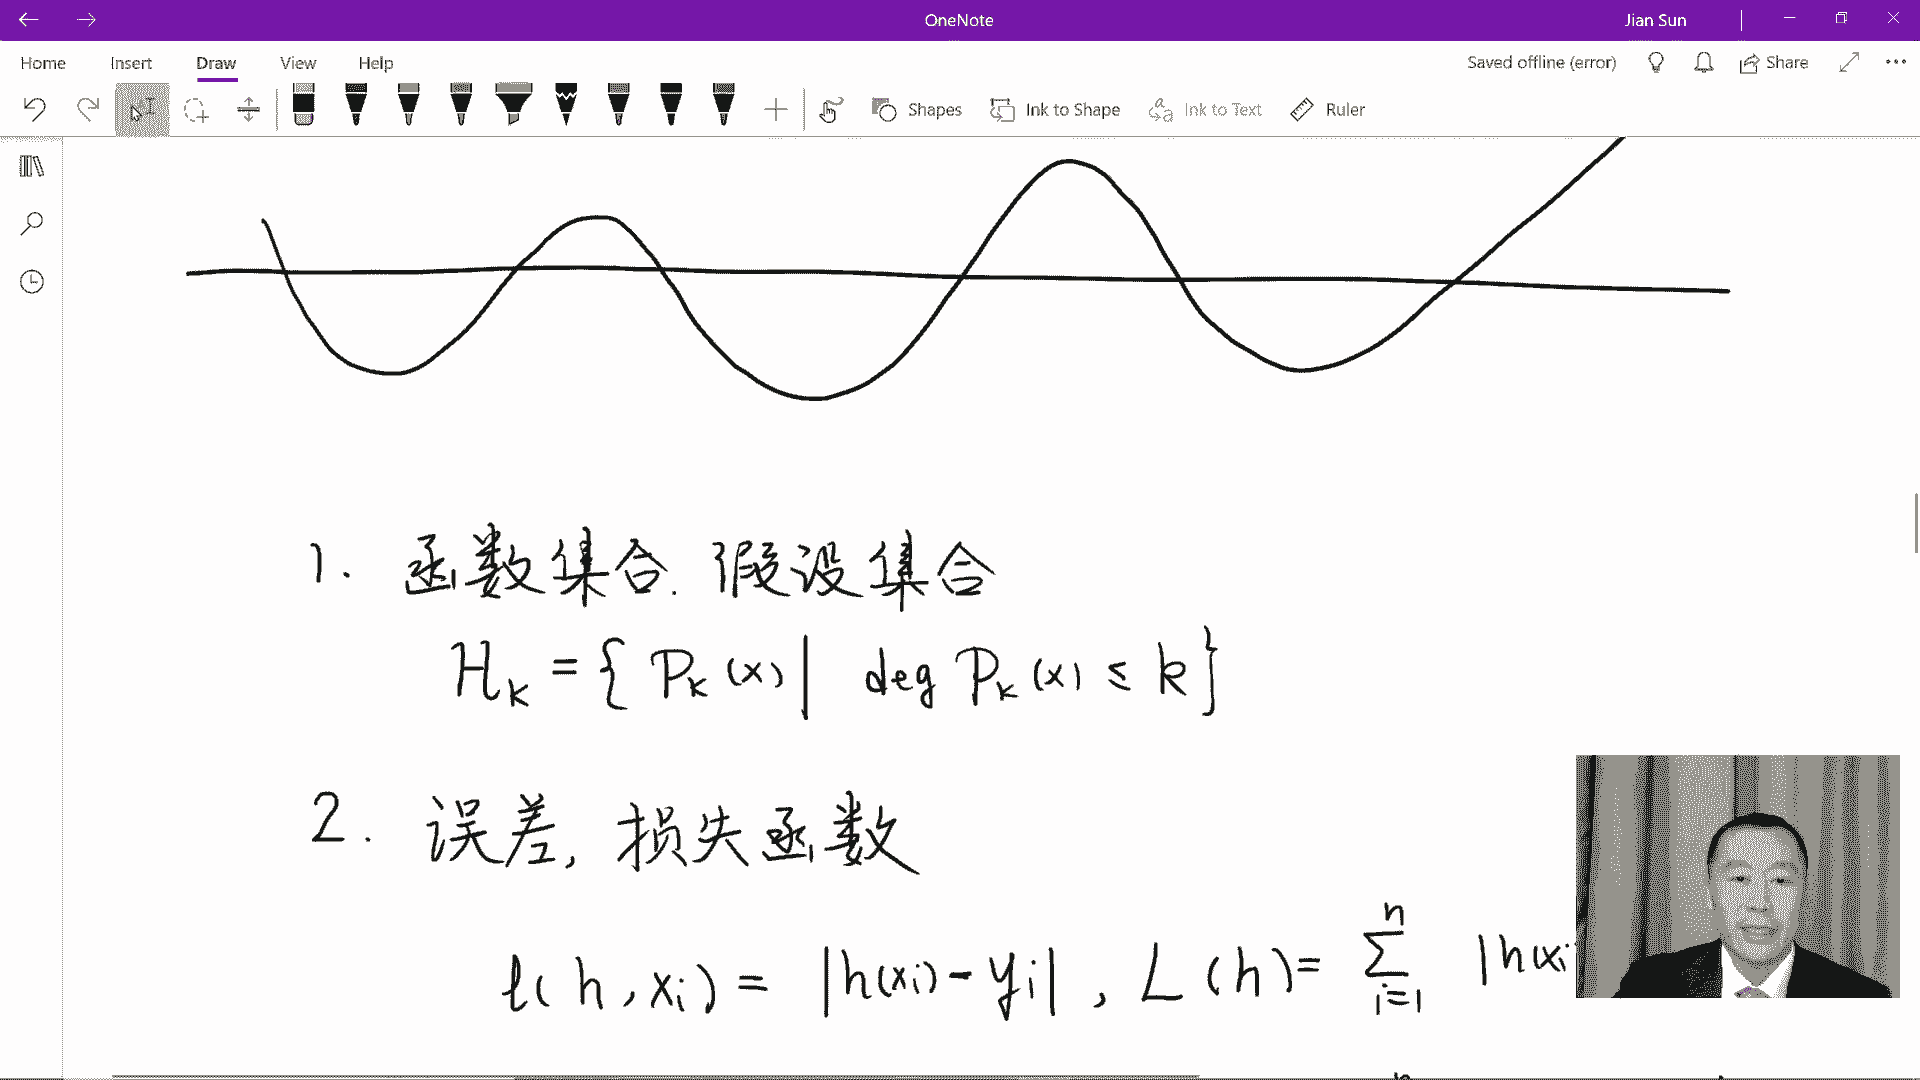 OneNote
Jian Sun
Home Insert Draw View Help
Saved offline (error) Share
Shapes Ink to Shape Ink to Text Ruler
1. 函数集合. 假设集合
H_k = { P_k (x) | deg P_k (x) ≤ k }
2. 误差, 损失函数
ℓ( h , x_i ) = | h(x_i) - y_i | , L ( h ) = ∑_{i=1}^{n} | h(x_i
n